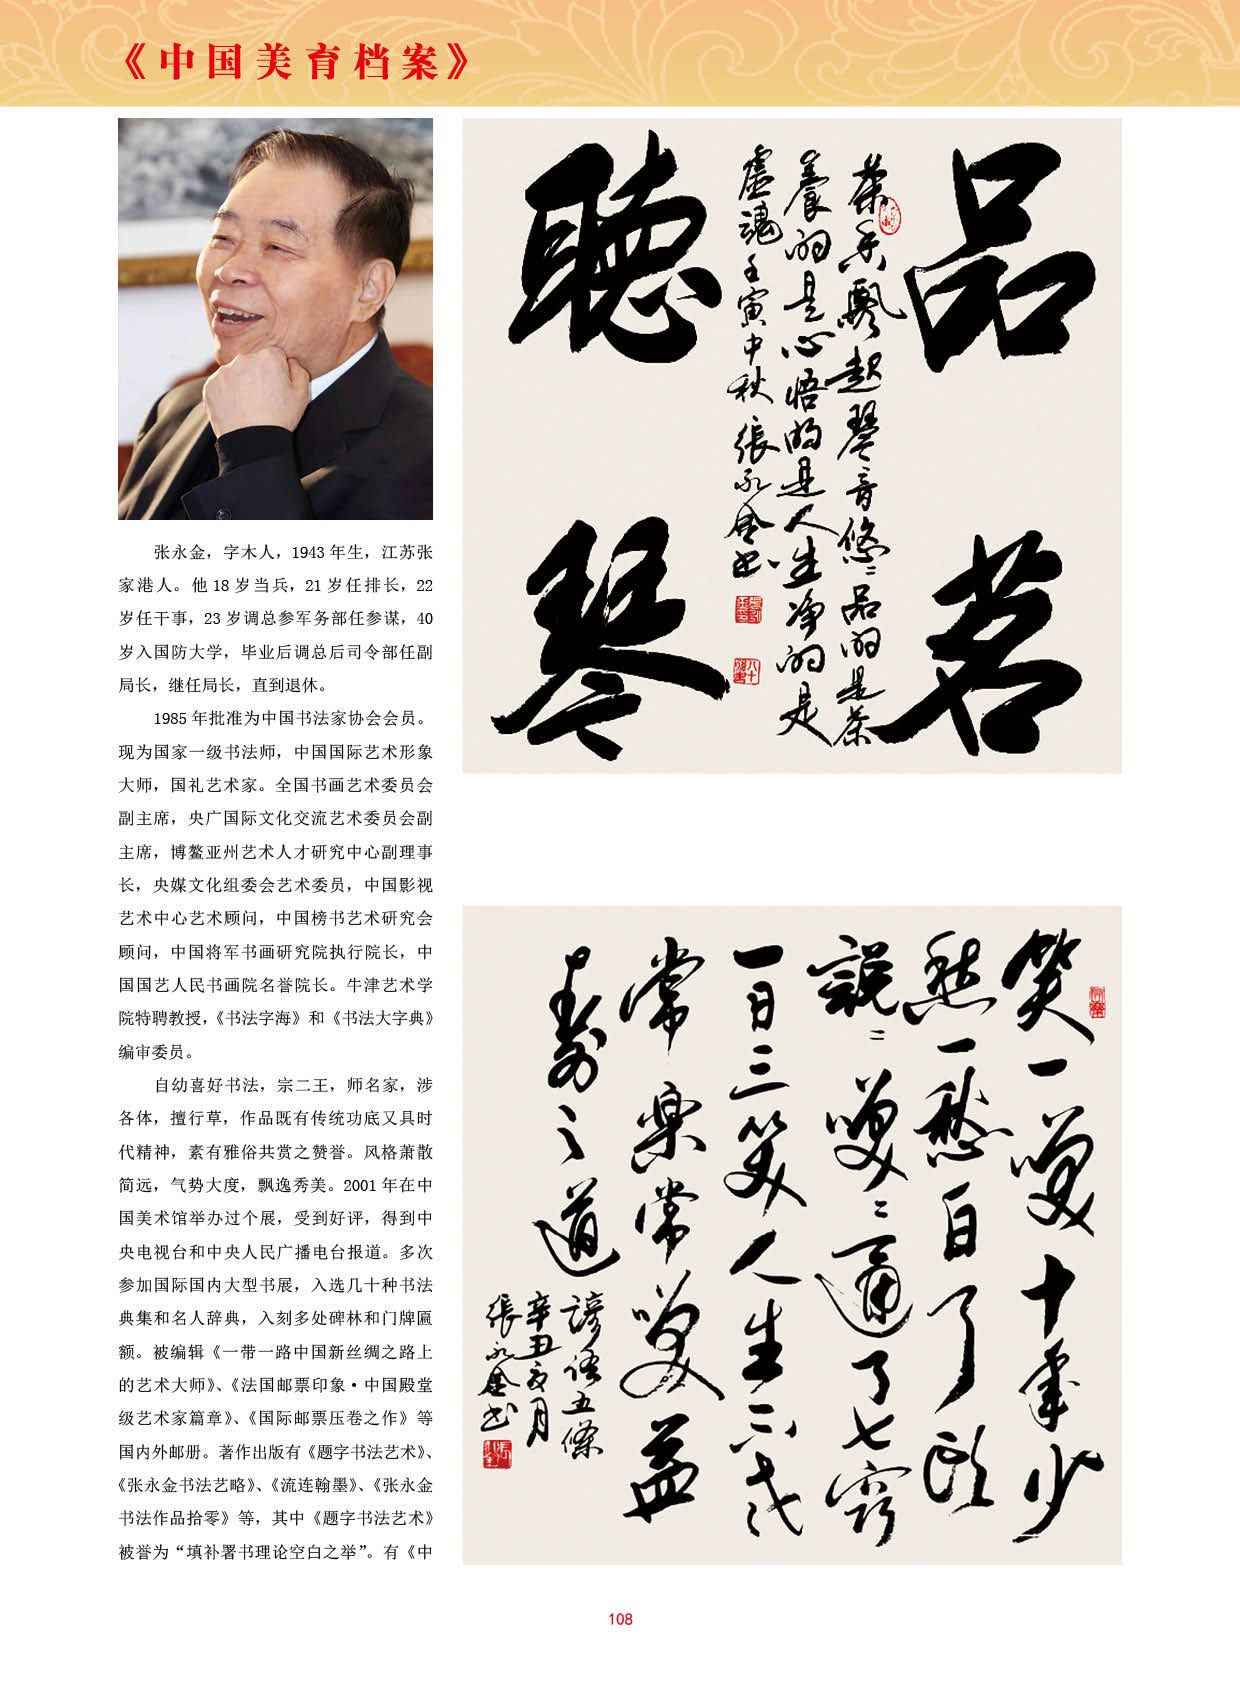 《中国美育档案》
张永金，字木人，1943 年生，江苏张
家港人。他 18 岁当兵，21 岁任排长，22
岁任干事，23 岁调总参军务部任参谋，40
岁入国防大学，毕业后调总后司令部任副
局长，继任局长，直到退休。
1985 年批准为中国书法家协会会员。
现为国家一级书法师，中国国际艺术形象
大师，国礼艺术家。全国书画艺术委员会
副主席，央广国际文化交流艺术委员会副
主席，博鳌亚州艺术人才研究中心副理事
长，央媒文化组委会艺术委员，中国影视
艺术中心艺术顾问，中国榜书艺术研究会
顾问，中国将军书画研究院执行院长，中
国国艺人民书画院名誉院长。牛津艺术学
院特聘教授，《书法字海》和《书法大字典》
编审委员。
自幼喜好书法，宗二王，师名家，涉
各体，擅行草，作品既有传统功底又具时
代精神，素有雅俗共赏之赞誉。风格萧散
简远，气势大度，飘逸秀美。2001 年在中
国美术馆举办过个展，受到好评，得到中
央电视台和中央人民广播电台报道。多次
参加国际国内大型书展，入选几十种书法
典集和名人辞典，入刻多处碑林和门牌匾
额。被编辑《一带一路中国新丝绸之路上
的艺术大师》、《法国邮票印象·中国殿堂
级艺术家篇章》、《国际邮票压卷之作》等
国内外邮册。著作出版有《题字书法艺术》、
《张永金书法艺略》、《流连翰墨》、《张永金
书法作品拾零》等，其中《题字书法艺术》
被誉为“填补署书理论空白之举”。有《中
品茗
茶香飘起琴音悠〻品的是茶
养的是心悟的是人生净的是
虚魂壬寅中秋張永金书
聽琴
笑一笑十年少
愁一愁白了头
説〻笑〻通了七窍
一日三笑人生不老
常樂常笑益
寿之道
諺语五條
辛丑亥月
張永金书
108